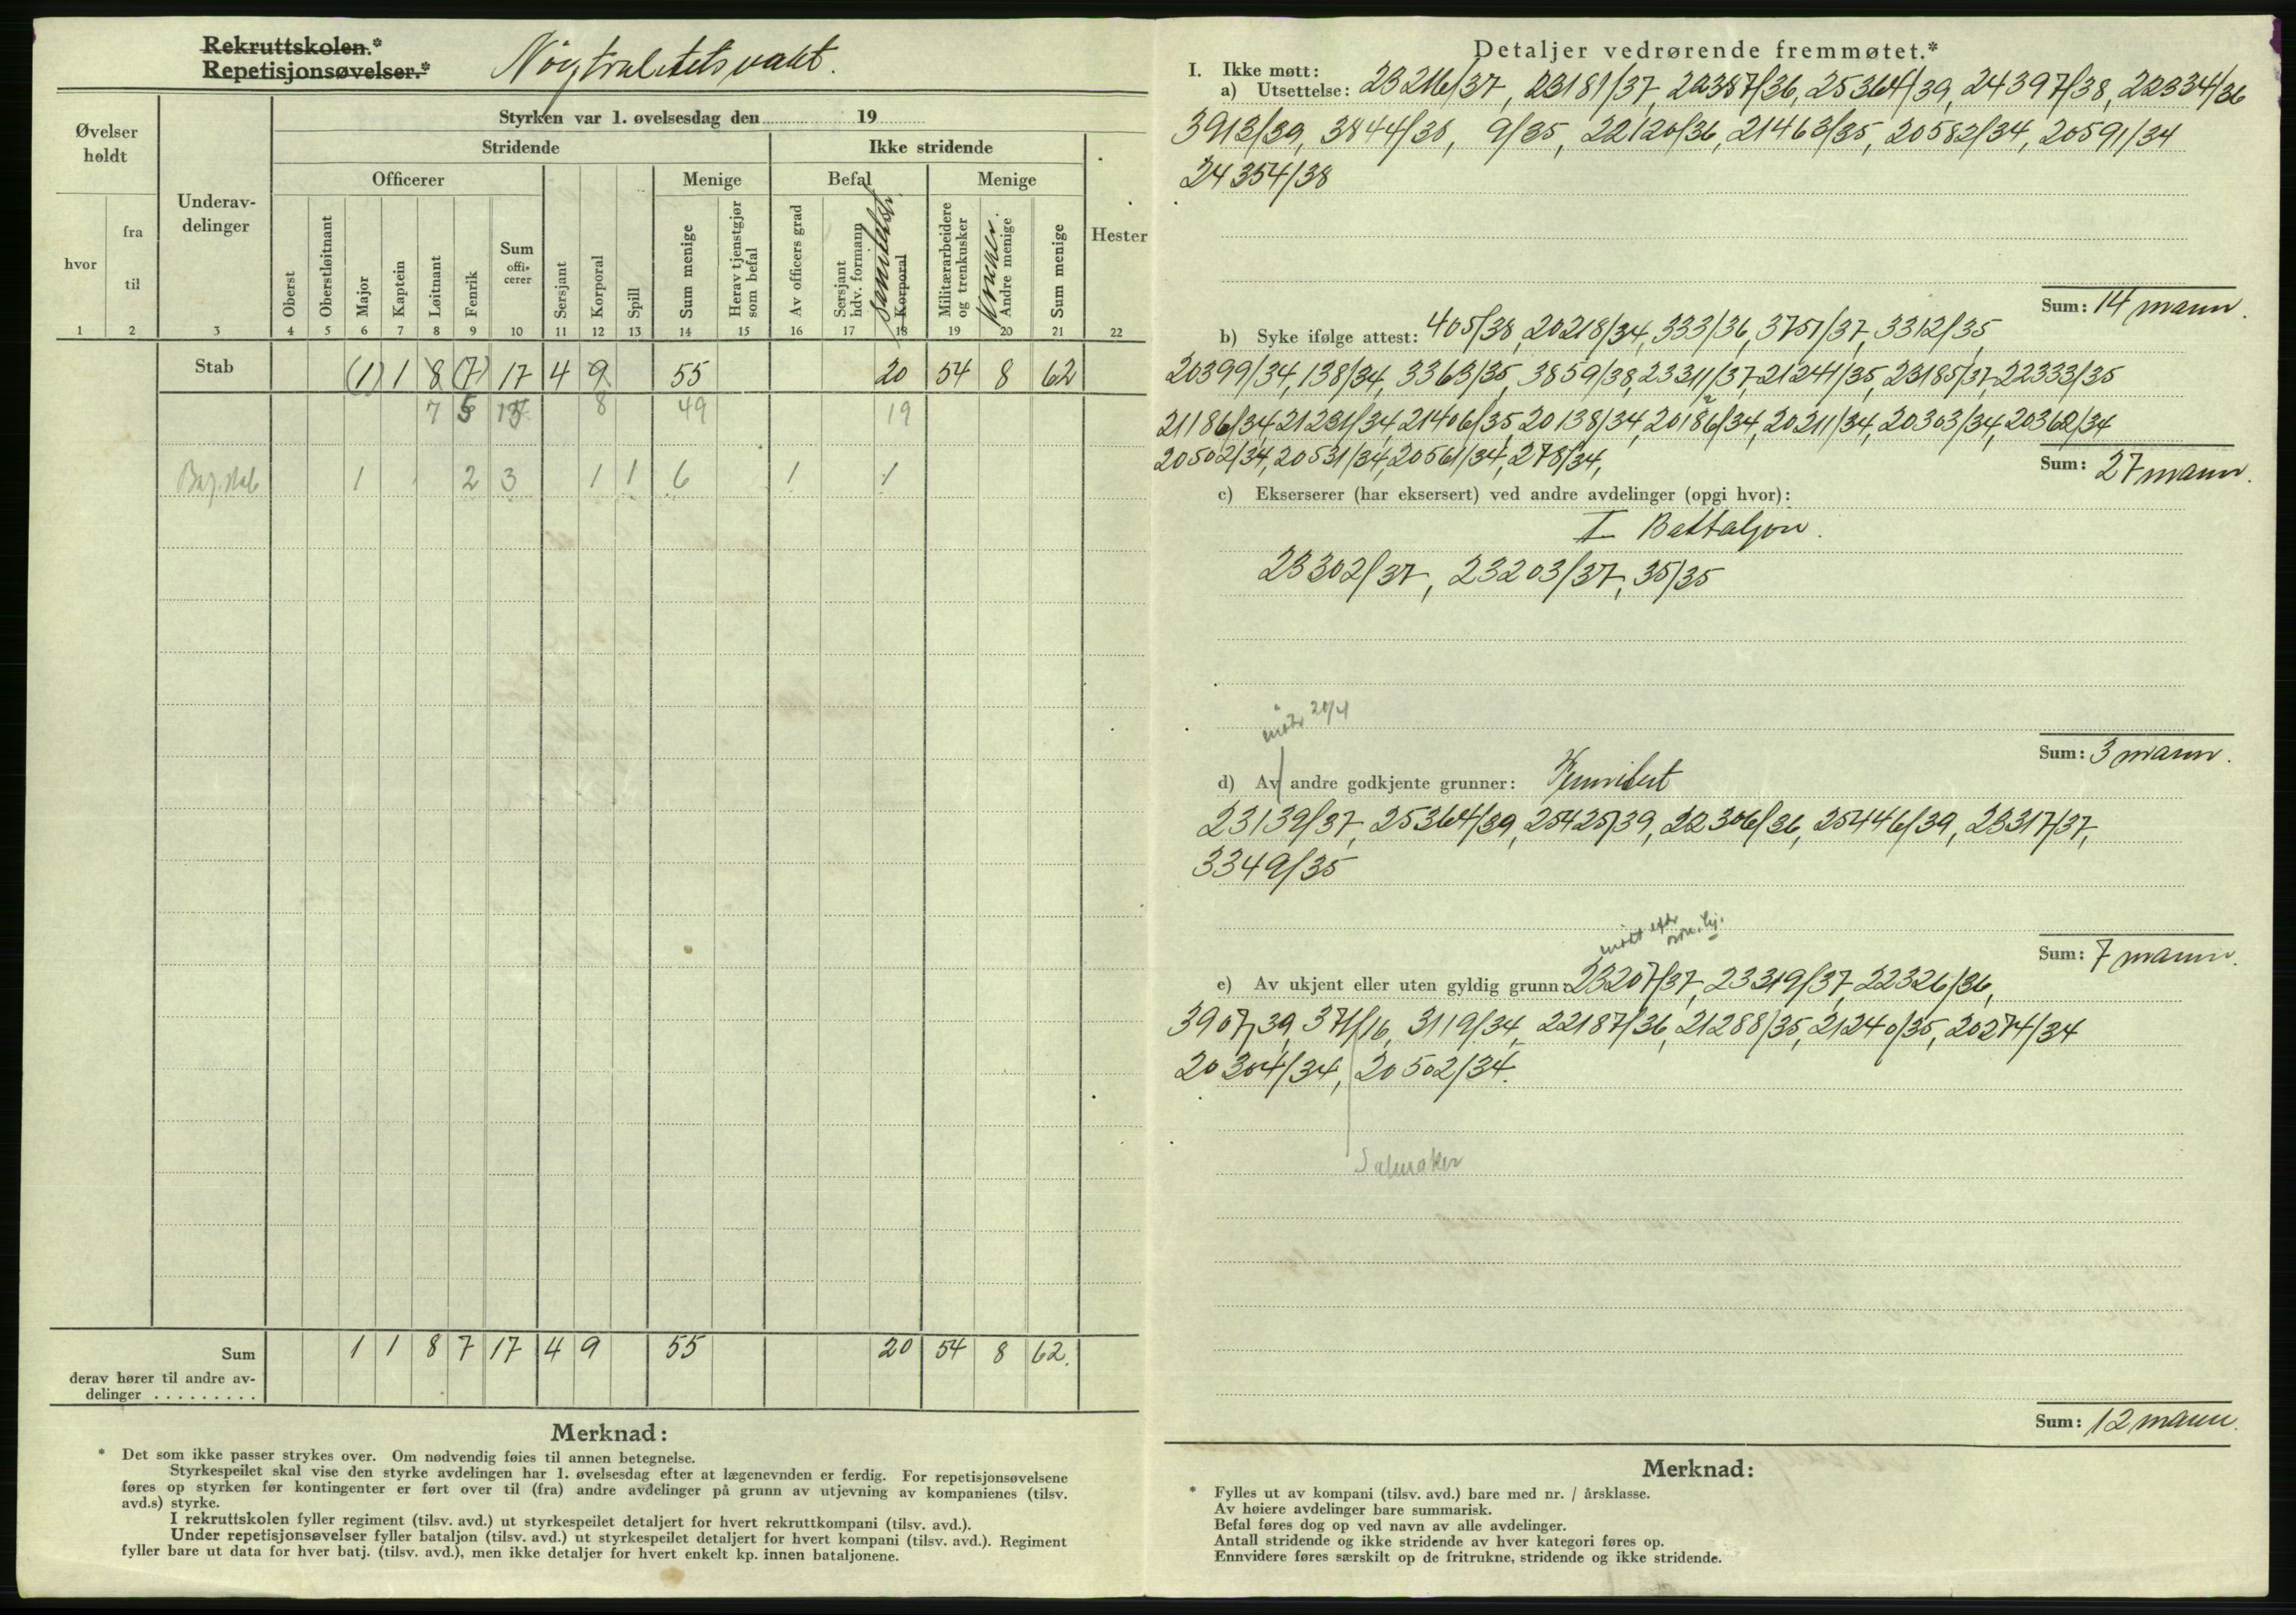 Rekruttskolen.*
Repetisjonsøvelser.*
Nøytralitetsvakt.
Øvelser holdt
hvor
fra
til
Underav-
delinger
Styrken var 1. øvelsesdag den 19
Stridende
Ikke stridende
Officerer
Menige
Befal
Menige
Hester
Oberst
Oberstløitnant
Major
Kaptein
Løitnant
Fenrik
Sum
offi-
cerer
Sersjant
Korporal
Spill
Sum menige
Herav tjenstgjør
som befal
Av officers grad
Sersjant
hdv. formann
Korporal
Militærarbeidere
og trenkusker
Andre menige
Sum menige
1 2 3 4 5 6 7 8 9 10 11 12 13 14 15 16 17 18 19 20 21 22
Stab (1) 1 8 (7) 17 4 9 55 20 54 8 62
7 5 13 8 49 19
1 2 3 1 1 6 1 1
Sum 1 1 8 7 17 4 9 55 20 54 8 62.
derav hører til andre av-
delinger . . . . . . . . .
Merknad:
* Det som ikke passer strykes over. Om nødvendig føies til annen betegnelse.
Styrkespeilet skal vise den styrke avdelingen har 1. øvelsesdag efter at lægenevnden er ferdig. For repetisjonsøvelsene
føres op styrken før kontingenter er ført over til (fra) andre avdelinger på grunn av utjevning av kompanienes (tilsv.
avd.s) styrke.
I rekruttskolen fyller regiment (tilsv. avd.) ut styrkespeilet detaljert for hvert rekruttkompani (tilsv. avd.).
Under repetisjonsøvelser fyller bataljon (tilsv. avd.) ut styrkespeilet detaljert for hvert kompani (tilsv. avd.). Regiment
fyller bare ut data for hver batj. (tilsv. avd.), men ikke detaljer for hvert enkelt kp. innen bataljonene.
Detaljer vedrørende fremmøtet.*
I. Ikke møtt:
a) Utsettelse: 23216/37, 23181/37, 22387/36, 25364/39, 24397/38, 22334/36
3913/39, 3844/38, 9/35, 22120/36, 21463/35, 20582/34, 20591/34
24354/38
Sum: 14 mann.
b) Syke ifølge attest: 405/38, 20218/34, 333/36, 3751/37, 3312/35,
20399/34, 138/34, 3363/35, 3859/38, 23311/37, 21241/35, 23185/37, 22333/35
21186/34, 21231/34, 21406/35, 20138/34, 20186/34, 20211/34, 20303/34, 20362/34
20502/34, 20531/34, 20561/34, 278/34,
Sum: 27 mann.
c) Ekserserer (har eksersert) ved andre avdelinger (opgi hvor):
I Battaljon.
23302/37, 23203/37, 35/35
Sum: 3 mann.
møtt 20/4
d) Av andre godkjente grunner:
23139/37, 25364/39, 25425/39, 22306/36, 25446/39, 23317/37,
3349/35
Sum: 7 mann.
møtt eftr
e) Av ukjent eller uten gyldig grunn: 23207/37, 23319/37, 22326/36,
3907/39, 371/16, 3119/34, 22187/36, 21288/35, 21240/35, 20274/34
20304/34, 20502/34.
Salmaker
Sum: 12 mann.
Merknad:
* Fylles ut av kompani (tilsv. avd.) bare med nr. / årsklasse.
Av høiere avdelinger bare summarisk.
Befal føres dog op ved navn av alle avdelinger.
Antall stridende og ikke stridende av hver kategori føres op.
Ennvidere føres særskilt op de fritrukne, stridende og ikke stridende.